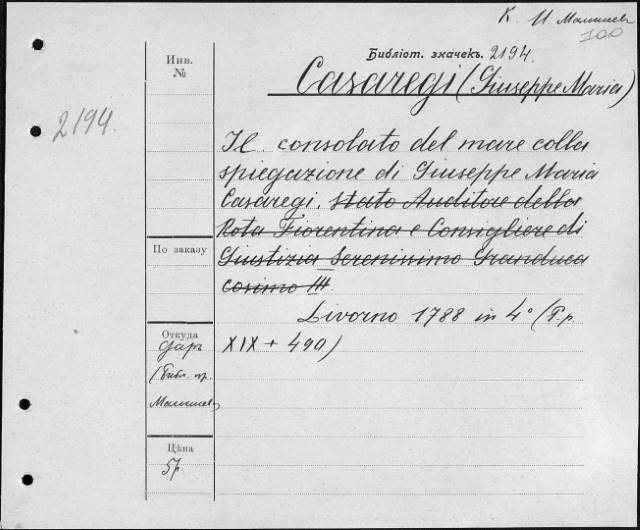 К. И Малышев
100
Библіот. значекъ. 2194.
Casaregi (Giuseppe Maria)
Инв.
№
2194.
Il consolato del mare colla
spiegazione di Giuseppe Maria
Casaregi. Stato Auditore della
Rota Fiorentina e Consigliere di
Giustizia Serenissimo Granduca
Cosimo III.
По заказу
Livorno 1788 in 4° (T.p.
XIX + 490)
Откуда
Даръ
(Библ. пр.
Малышев)
Цѣна
5р